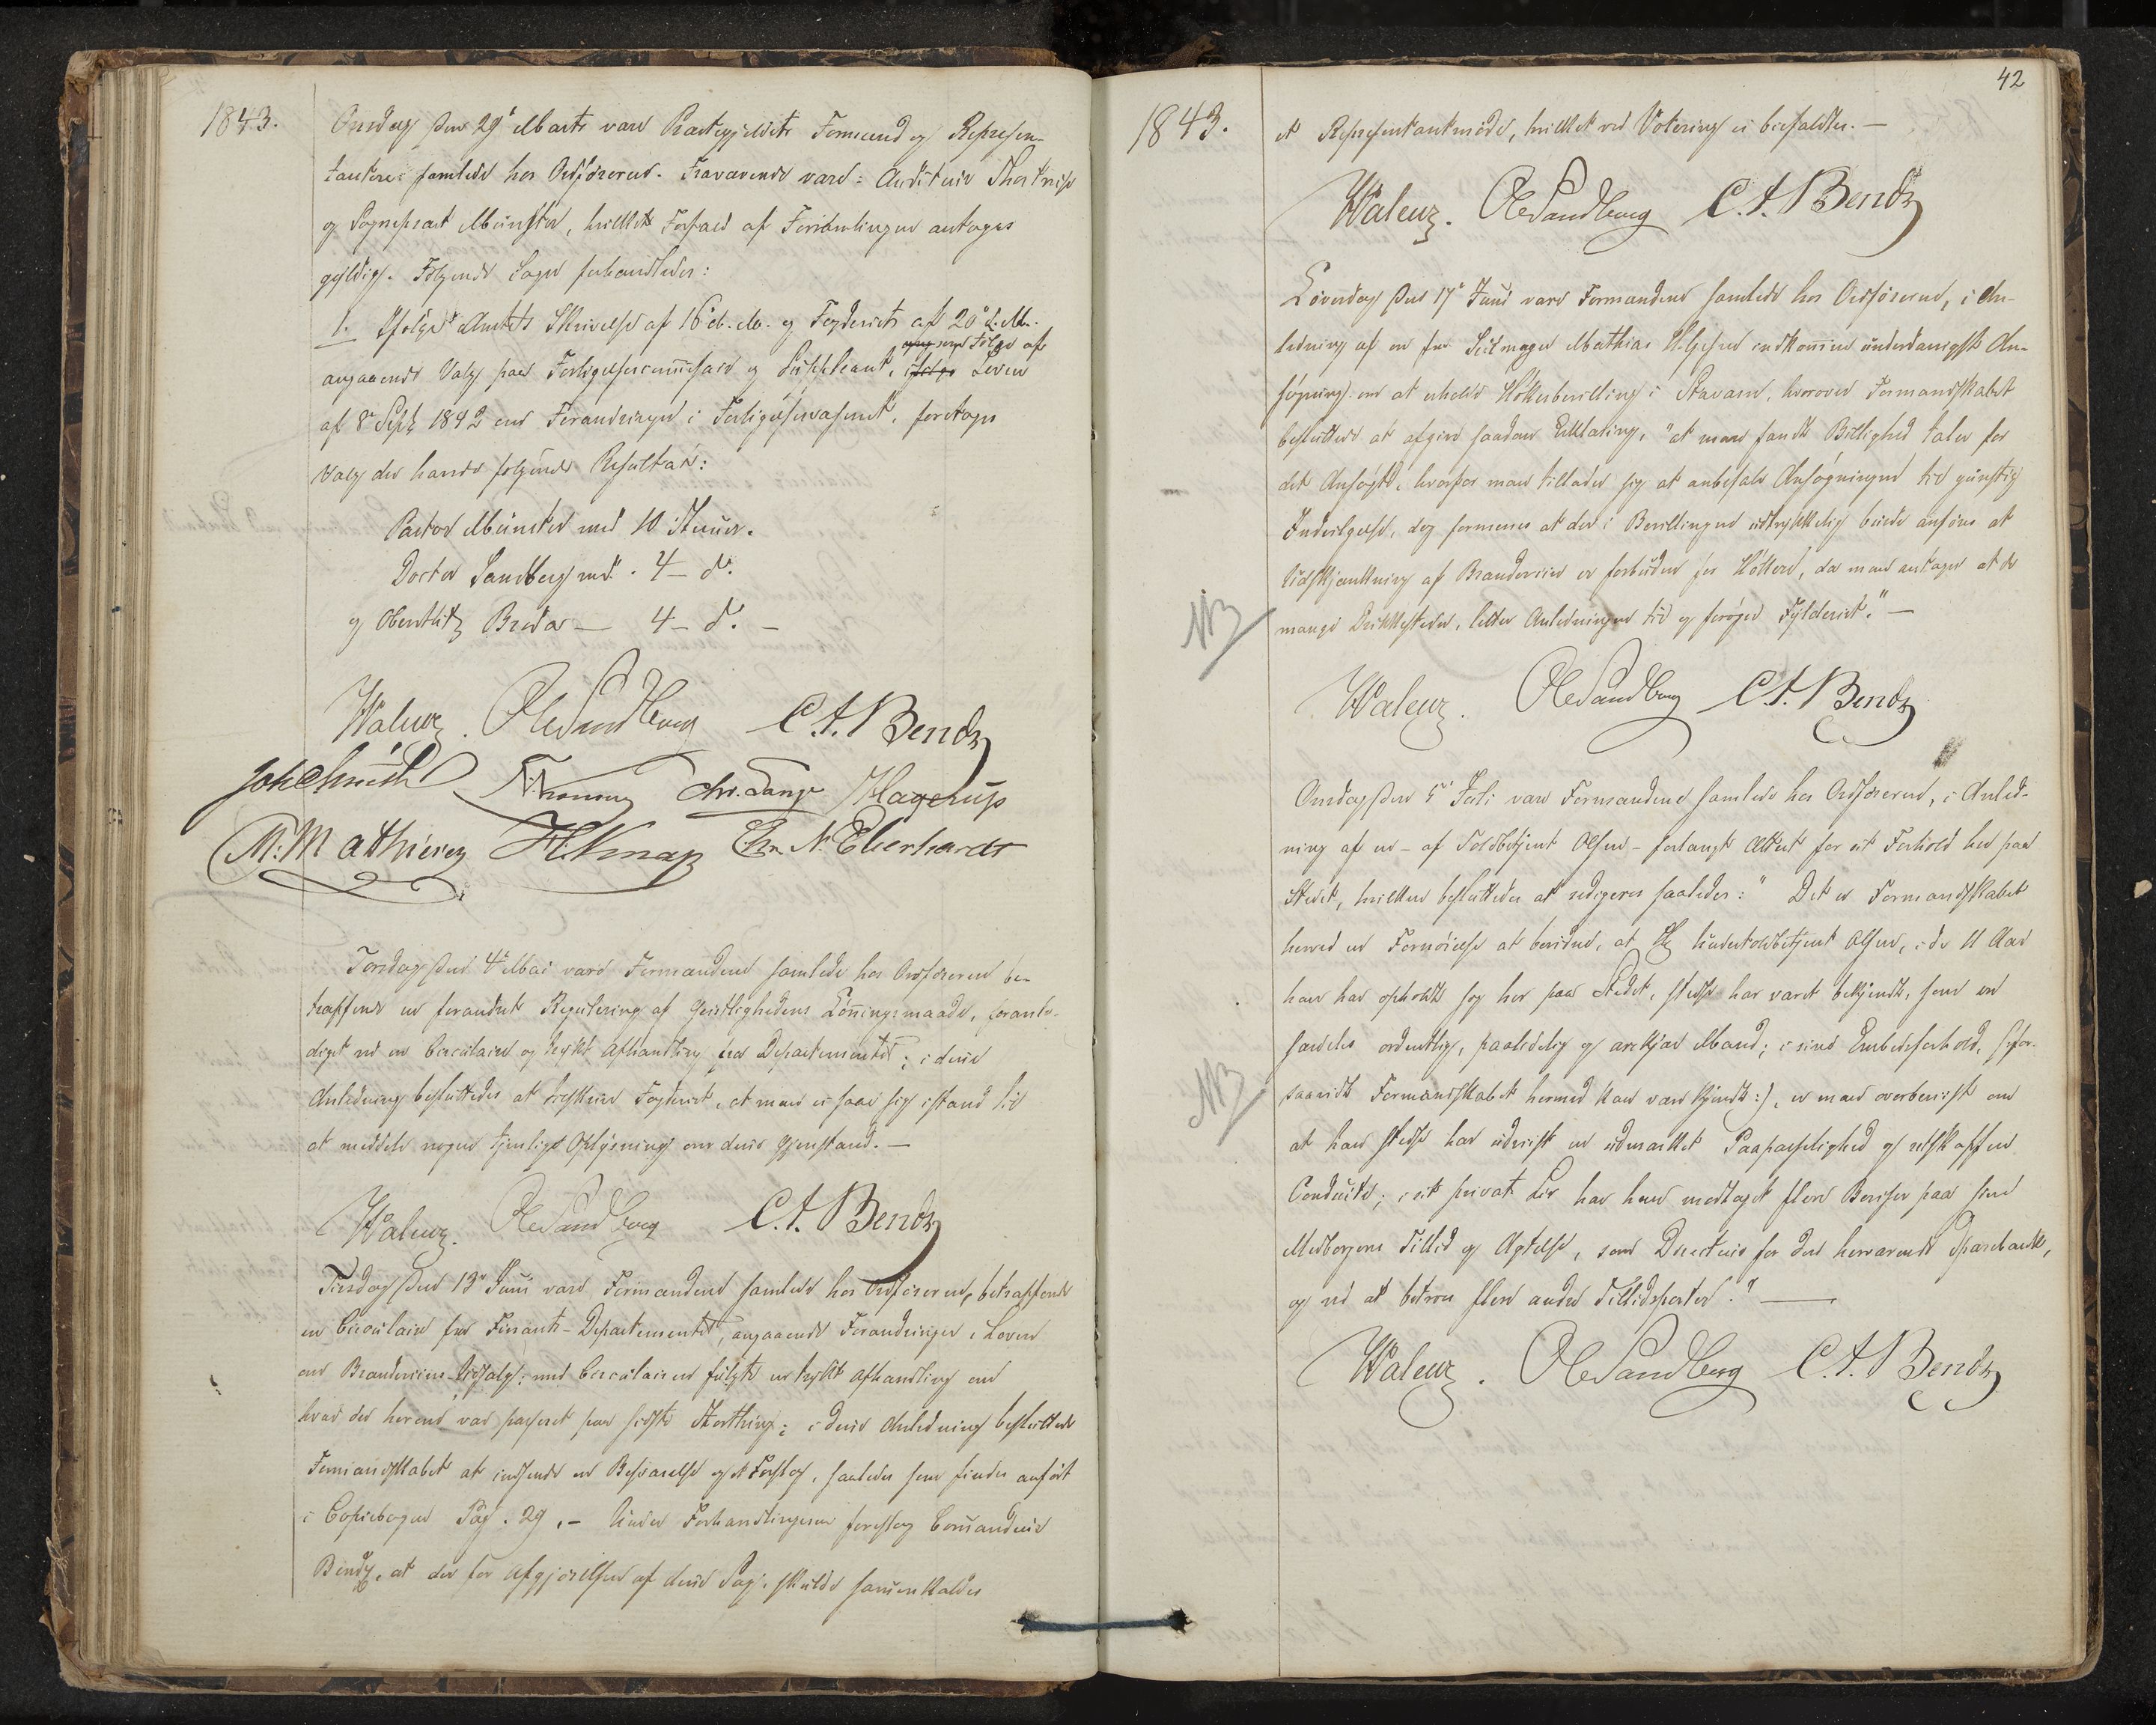 1843.
Onsdag den 29de Marts vare Præstegjeldets Formænd og Repræsen-
tantere samlede hos Ordføreren. Fraværende vare: Auditeur
og Sogneprest Münster, hvilket Forfald af Forsamlingen antoges
gyldig. Følgende Sager forhandledes:
1. Ifølge Amtets Skrivelse af 16de d. M. og Fogderiets af 20de d. M.
som Følge af
angaaende Valg paa Forligelsescommissair og Suppleant, ifølge Loven
af 8de Septbr 1842 om Forandringer i Forligelsesvæsenet, foretoges
Valg der havde følgende Resultat:
Pastor Münster med 10 Stemmer.
Doctor Sandberg med . 4 – do.
og Oberstltn Breda — 4 – do. –
Waleur. Ole Sandberg C. A. Bendz
Joh Schmidt Chr. Lange Hagerup
M: Mathiesen H. Knap Chr. N. Eberhardt
Torsdag den 4de Mai vare Formændene samlede hos Ordføreren be-
træffende en forandret Regulering af Geistlighedens Lønningsmaade, foranle-
diget ved en Circulaire og trykt Afhandling fra Departementet; i denne
Anledning besluttedes at tilskrive Fogderiet, at man ei saae sig istand til
at meddele nogen tjenlige Oplysning om denne Gjenstand. —
Waleur. Ole Sandberg C. A. Bendz
Tirsdag den 13de Juni vare Formændene samlede hos Ordføreren, betræffende
en Circulaire fra Finants-Departementet, angaaende Forandringer i Loven
om Brændeviins-Udsalg; med Circulairen fulgte en trykt Afhandling om
hvad der herom var passeret paa sidste Storthing; i denne Anledning besluttede
Formandskabet at indsende en Besvarelse og et Forslag, saaledes som findes anført
i Copiebogen Pag. 29. – Under Forhandlingerne foreslog Commandeur
Bendz, at der for Afgjørelsen af denne Sag, skulde sammenkaldes
42
1843.
et Repræsentantmøde, hvilket ved Votering ei bifaldtes. —
Waleur. Ole Sandberg C. A. Bendz
Løverdag den 17de Juni vare Formændene samlede hos Ordføreren, i An-
ledning af en fra Seilmager Mathias Helgesen indkommen underdanigst An-
søgning om at erholde Høkerbevilling i Staværn, hvorover Formandskabet
besluttede at afgive saadan Erklæring, "at man fandt Billighed taler for
det Ansøgte, hvorfor man tillader sig at anbefale Ansøgningen til gunstig
Indvilgelse, dog formenes at der i Bevillingen udtrykkelig burde anføres at
Udskjænkning af Brændeviin er forbuden for Høkere, da man antager at de
mange Drikkesteder, letter Anledningen til og forøger Fylderiet." —
NB
Waleur. Ole Sandberg C. A. Bendz
Onsdag den 5te Juli vare Formændene samlede hos Ordføreren, i Anled-
ning af en – af Toldbetjent Olsen – forlangt Attest for sit Forhold her paa
Stedet, hvilken besluttedes at redigeres saaledes: "Det er Formandskabet
herved en Fornøielse at bevidne, at Hr Undertoldbetjent Olsen, i de 11 Aar
han har opholdt sig her paa Stedet, stedse har været bekjendt, som en
særdeles ordentlig, paalidelig og ærekjær Mand; i sine Embedsforhold, (:for-
saavidt Formandskabet hermed kan være kjendt:), er man overbeviist om
NB
at han stedse har udviist en udmærket Paapasselighed og retskaffen
Conduite; i sit privat Liv har han modtaget flere Beviser paa sine
Medborgeres Tillid og Agtelse, som Directeur for den herværende Sparebank,
og ved at betroes flere andre Tillidsposter." —
Waleur. Ole Sandberg C. A. Bendz